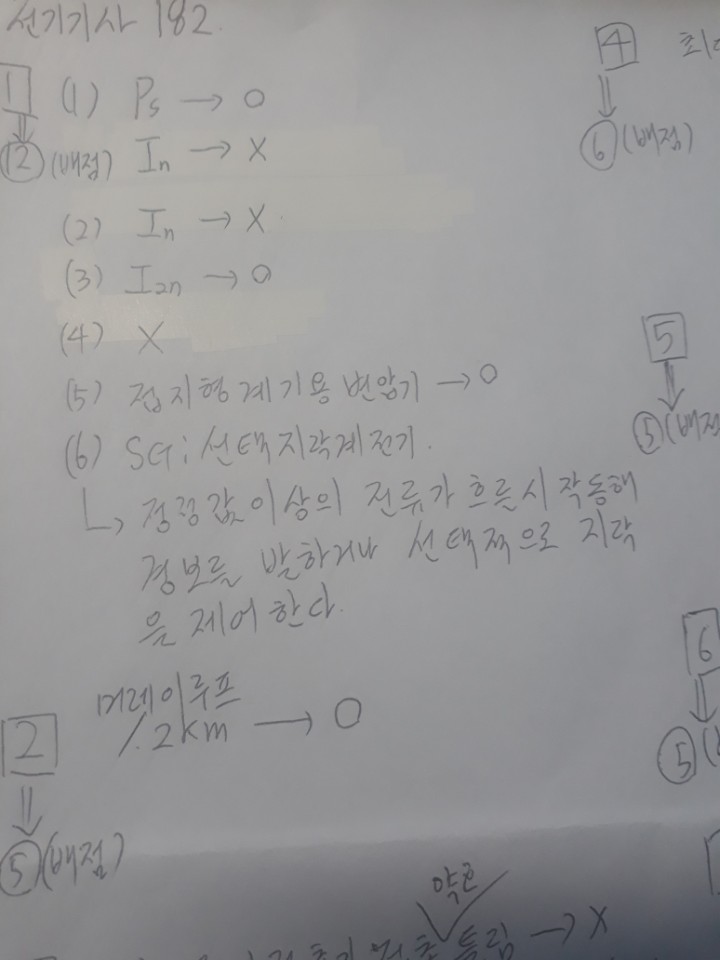 전기기사 182.
1 (1) Ps → O
12 (배점) In → X
(2) In → X
(3) I2n → O
(4) X
(5) 접지형계기용변압기 → O
(6) SG : 선택지락계전기.
↳ 정정값이상의 전류가 흐를시 작동해
경보를 발하거나 선택적으로 지락
을 제어한다.
2 머레이루프
1.2km → O
5 (배점)
약호
틀림 → X
4
6 (배점)
5
5 (배점
6
5